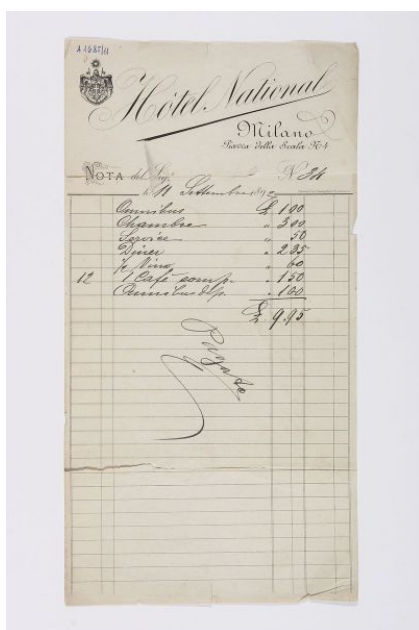 A 1685/11
Hôtel National
Milano
Piazza della Scala N. 4
NOTA del Sigr. N. 34
li 11 Settembre
Omnibus £ 1 00
Chambre " 3 00
Service " 50
Diner " 2 35
½ Vino " 60
12 1 Café comp. " 1 50
Omnibus dep. " 1 00
£ 9.95
Pagato